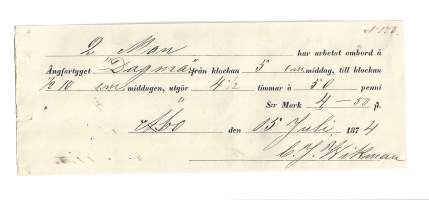 N. 172.
2 Man har arbetat ombord å
Ångfartyget "Dagmar" från klockan 5 em. middag, till klockan
½ 10 em. middagen, utgör 4½ timmar à 50 penni
S:r Mark 4-50 p.
Åbo den 15 Juli 1874
C. J. Wikman